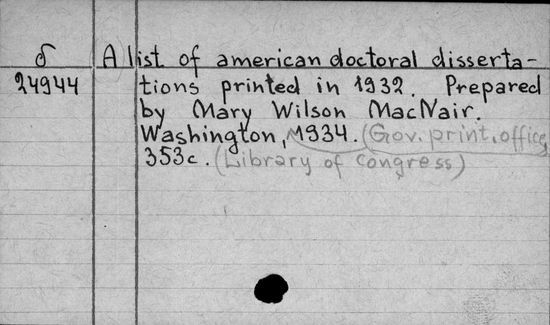 δ A list of american doctoral disserta-
24944 tions printed in 1932. Prepared
by Mary Wilson MacNair.
Washington, 1934. (Gov. print. office,
353c. (Library of congress)